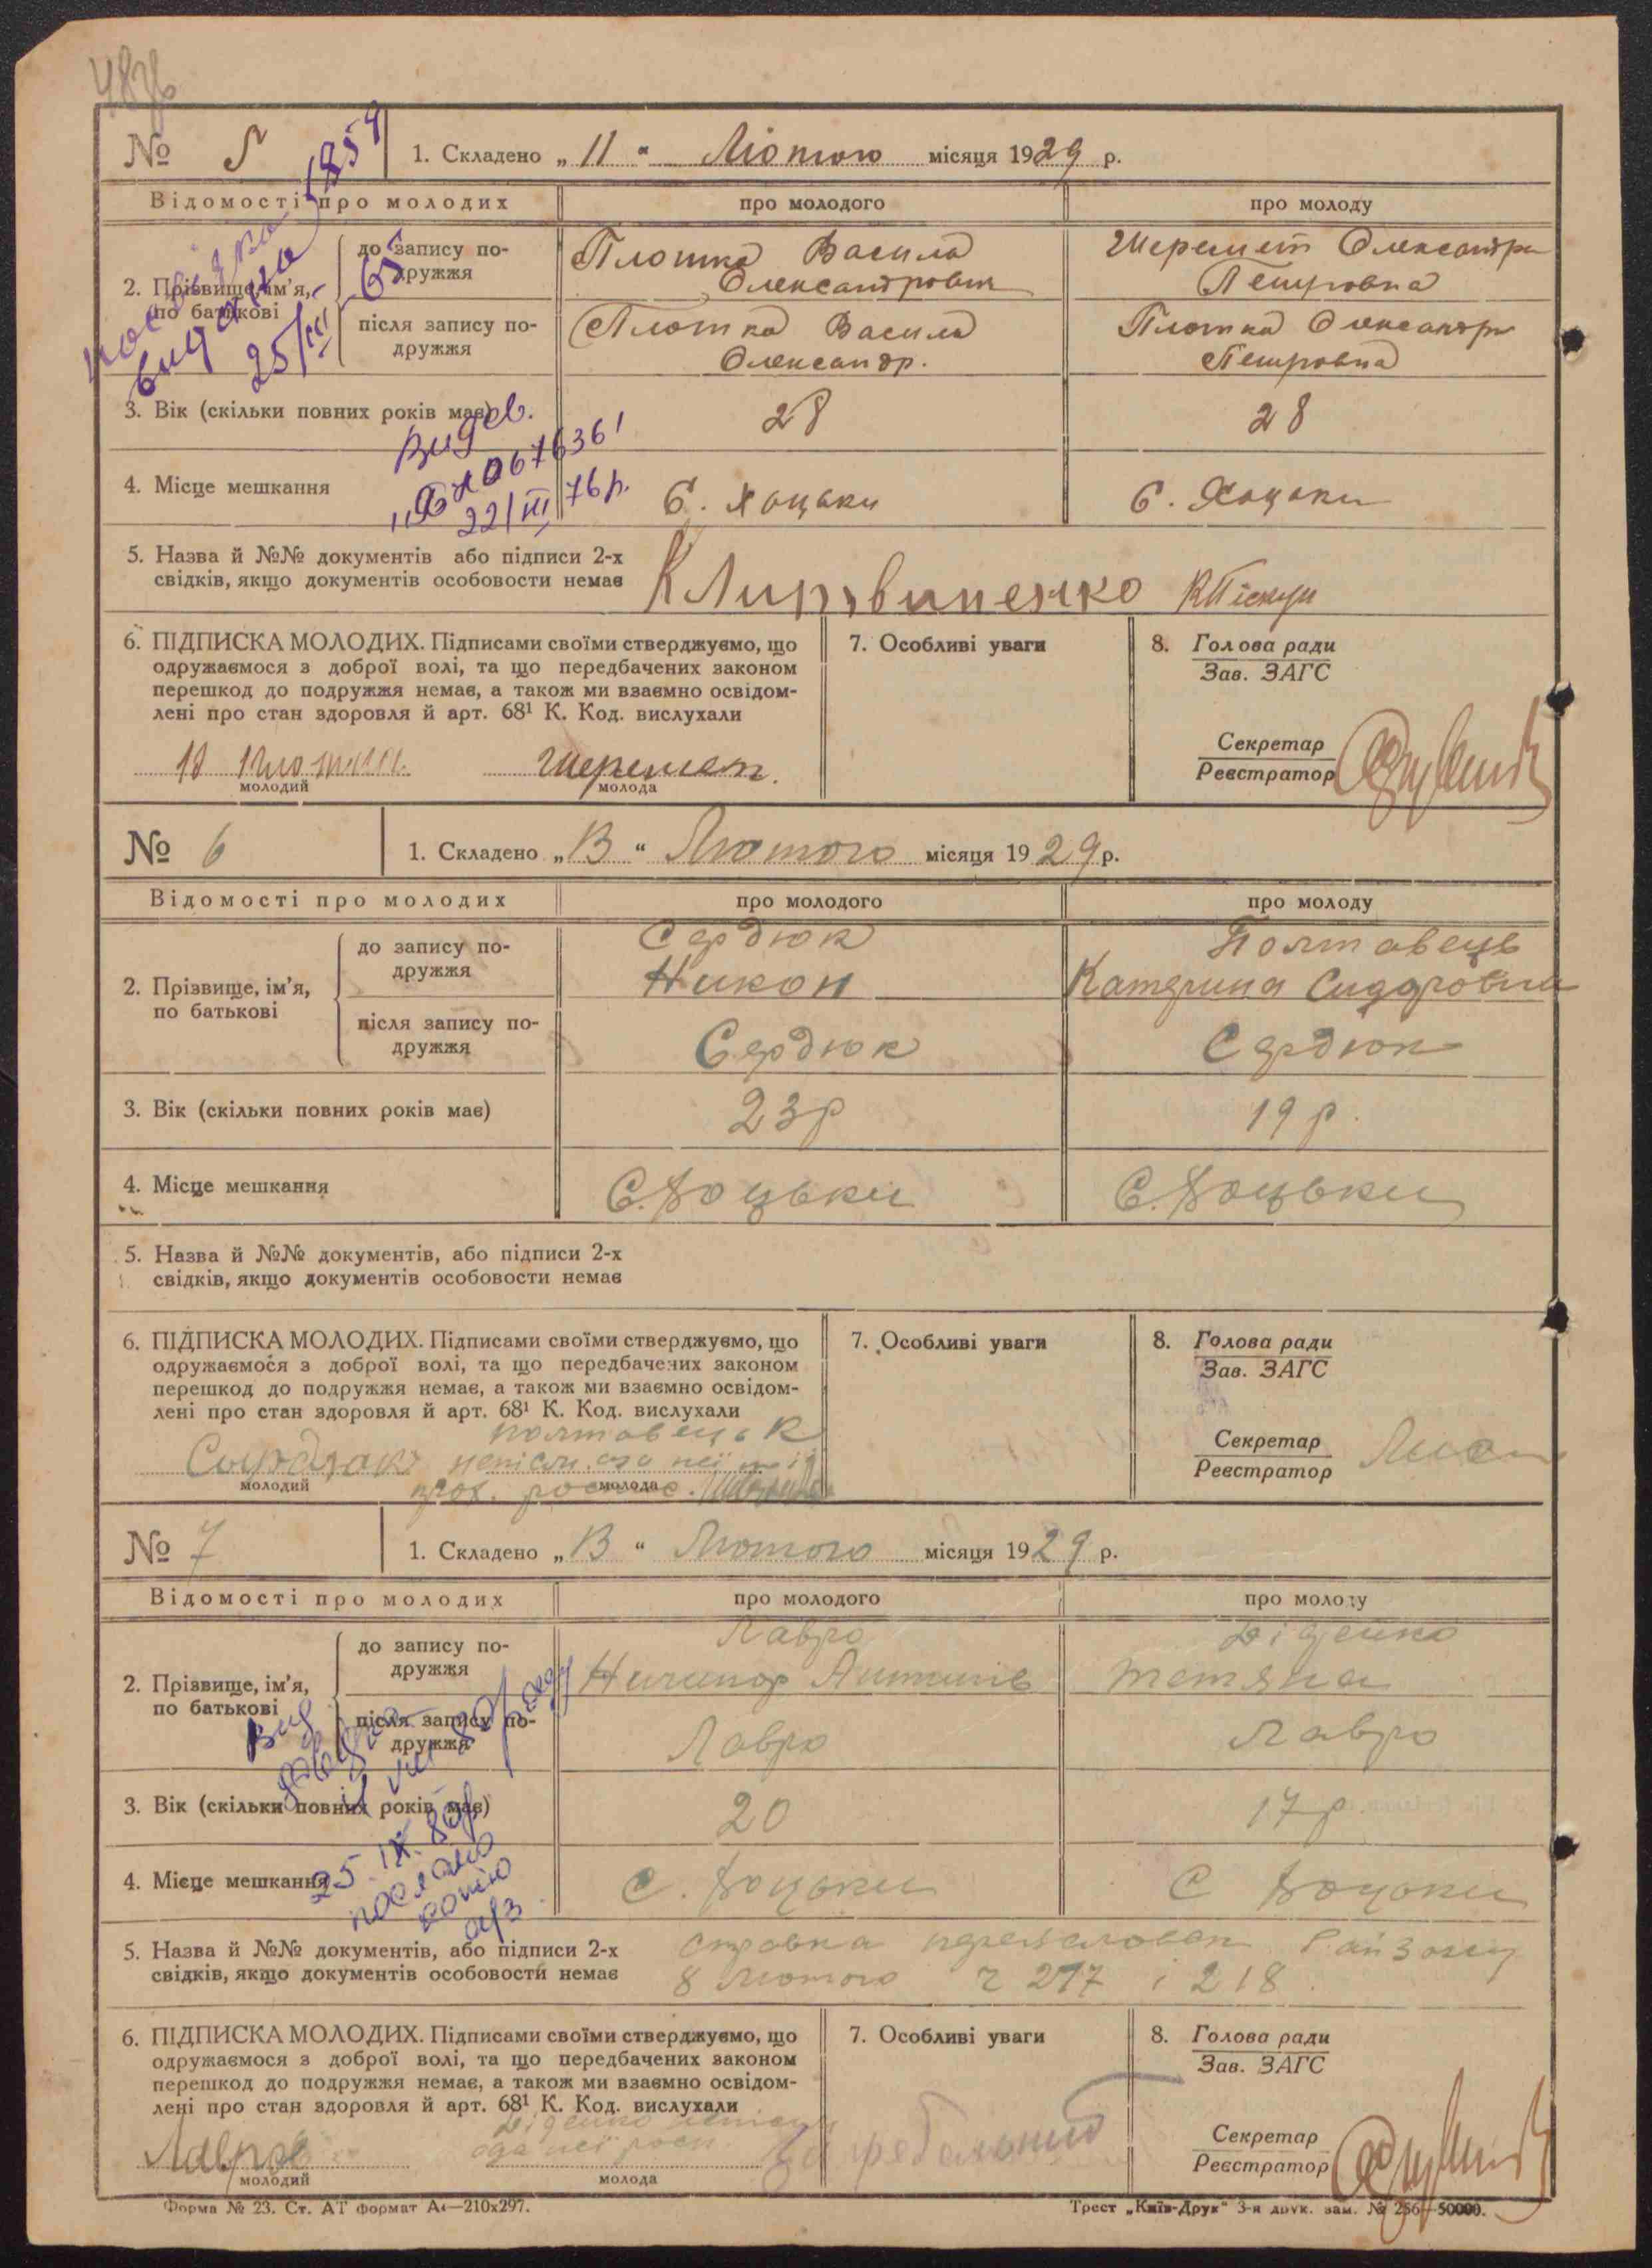 № 5
1. Складено „11" Лютого місяця 1929 р.
Відомості про молодих
про молодого
про молоду
2. Прізвище, ім'я, по батькові
до запису подружжя
Плотка Василь
Олександрович
Шеремет Олександра
Петровна
після запису подружжя
Плотка Василь
Олександр.
Плотка Олександр
Петровна
3. Вік (скільки повних років має)
28
28
4. Місце мешкання
С. Хоцьки
С. Хоцьки
видана
25/III
22/III 76 р.
5. Назва й №№ документів або підписи 2-х
свідків, якщо документів особовости немає
6. ПІДПИСКА МОЛОДИХ. Підписами своїми стверджуємо, що
одружаємося з доброї волі, та що передбачених законом
перешкод до подружжя немає, а також ми взаємно освідом-
лені про стан здоровля й арт. 68¹ К. Код. вислухали
Шеремет.
молодий
молода
7. Особливі уваги
8. Голова ради
Зав. ЗАГС
Секретар
Реєстратор
№ 6
1. Складено „13" Лютого місяця 1929 р.
Відомості про молодих
про молодого
про молоду
2. Прізвище, ім'я,
по батькові
до запису по-
дружжя
Сердюк
Никон
Полтавець
Катерина Сидоровна
після запису по-
дружжя
Сердюк
Сердюк
3. Вік (скільки повних років має)
23 р
19 р.
4. Місце мешкання
С. Хоцьки
С. Хоцьки
5. Назва й №№ документів, або підписи 2-х
свідків, якщо документів особовости немає
6. ПІДПИСКА МОЛОДИХ. Підписами своїми стверджуємо, що
одружаємося з доброї волі, та що передбачених законом
перешкод до подружжя немає, а також ми взаємно освідом-
лені про стан здоровля й арт. 68¹ К. Код. вислухали
Полтавець К
молодий
молода
7. Особливі уваги
8. Голова ради
Зав. ЗАГС
Секретар
Реєстратор
№ 7
1. Складено „13" Лютого місяця 1929 р.
Відомості про молодих
про молодого
про молоду
2. Прізвище, ім'я,
по батькові
до запису по-
дружжя
Лавро
Ничипор Антипів
Діденко
Тетяна
після запису по-
дружжя
Лавро
Лавро
3. Вік (скільки повних років має)
20
17 р.
4. Місце мешкання
С. Хоцьки
С Хоцьки
25.IX.80р
послано
копію
5. Назва й №№ документів, або підписи 2-х
свідків, якщо документів особовости немає
справка
8 Лютого ч 217 і 218.
6. ПІДПИСКА МОЛОДИХ. Підписами своїми стверджуємо, що
одружаємося з доброї волі, та що передбачених законом
перешкод до подружжя немає, а також ми взаємно освідом-
лені про стан здоровля й арт. 68¹ К. Код. вислухали
Діденко
Лавро
молодий
молода
7. Особливі уваги
8. Голова ради
Зав. ЗАГС
Секретар
Реєстратор
Форма № 23. Ст. АТ формат А4—210x297.
Трест „Київ-Друк" 3-я друк. зам. № 256—50000.